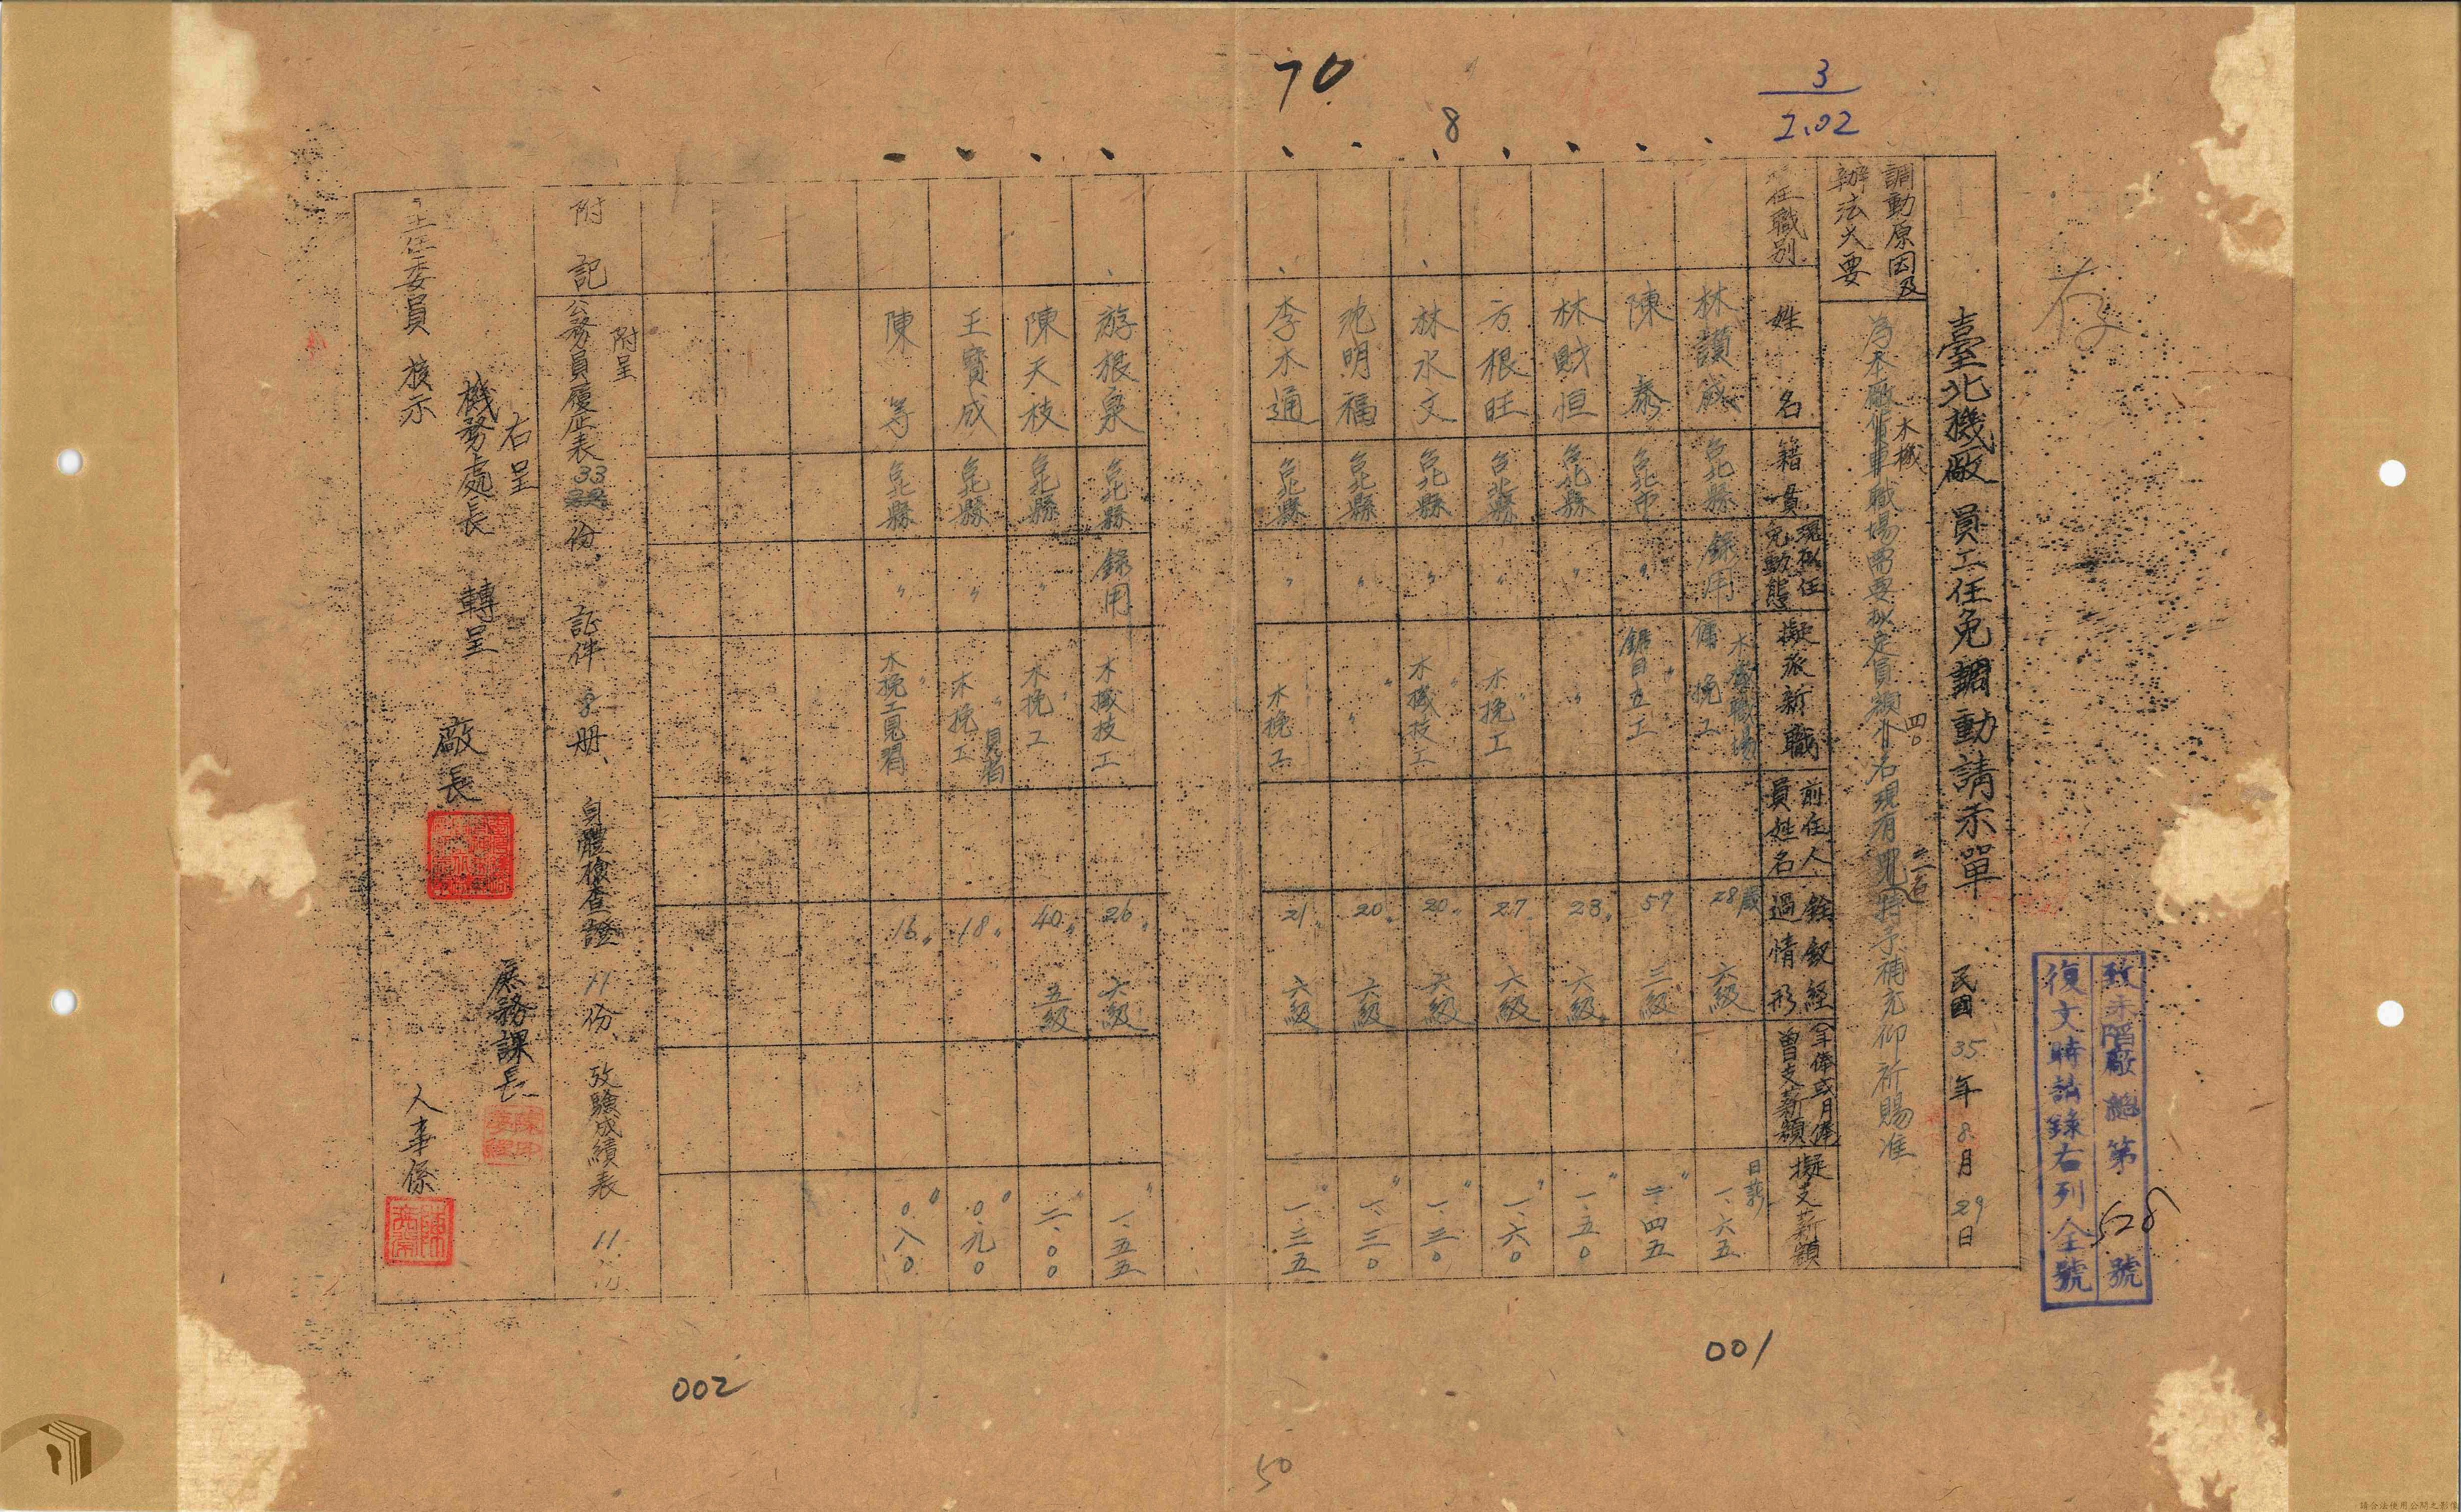 70
8
3
2.02
存
致未陷廠總第528號
復文時請錄右列全號
臺北機廠員工任免調動請示單 民國35年8月29日
調動原因及
辦法大要
為本廠木機職場需要拟定員額四〇名現有 特予補充仰祈賜准
任職別 姓名 籍貫 現拟任免動態 擬派新職 前任人員姓名 銓敘經過情形 年俸或月俸曾支薪額 擬支薪額
林讚成 台北縣 錄用 木機職場 挽工 28歲 六級 日薪 一.六五
陳泰 台北市 〃 〃 鋸目立工 57 三級 〃 二.四五
林財恒 台北縣 〃 〃 23〃 六級 〃 一.五〇
方根旺 台北縣 〃 〃 木挽工 27〃 六級 〃 一.六〇
林水文 台北縣 〃 〃 木機技工 20〃 六級 〃 一.三〇
池明福 台北縣 〃 〃 〃 20〃 六級 〃 一.三〇
李木通 台北縣 〃 木挽工 21〃 六級 〃 一.三五
游根泉 台北縣 錄用 木機技工 26〃 六級 〃 一.五五
陳天枝 台北縣 〃 〃 木挽工 40〃 五級 〃 二.〇〇
王寶成 台北縣 〃 〃 木挽工見習 18〃 〃 〇.九〇
陳等 台北縣 〃 〃 木挽工見習 16〃 〃 〇.八〇
附記
附呈
公務員履歷表33份 証件 册、身體檢查證11份、攷驗成績表11
右呈
機務處長 轉呈
主任委員 核示
廠長
庶務課長
人事係
001
002
50
請合法使用公開之影像